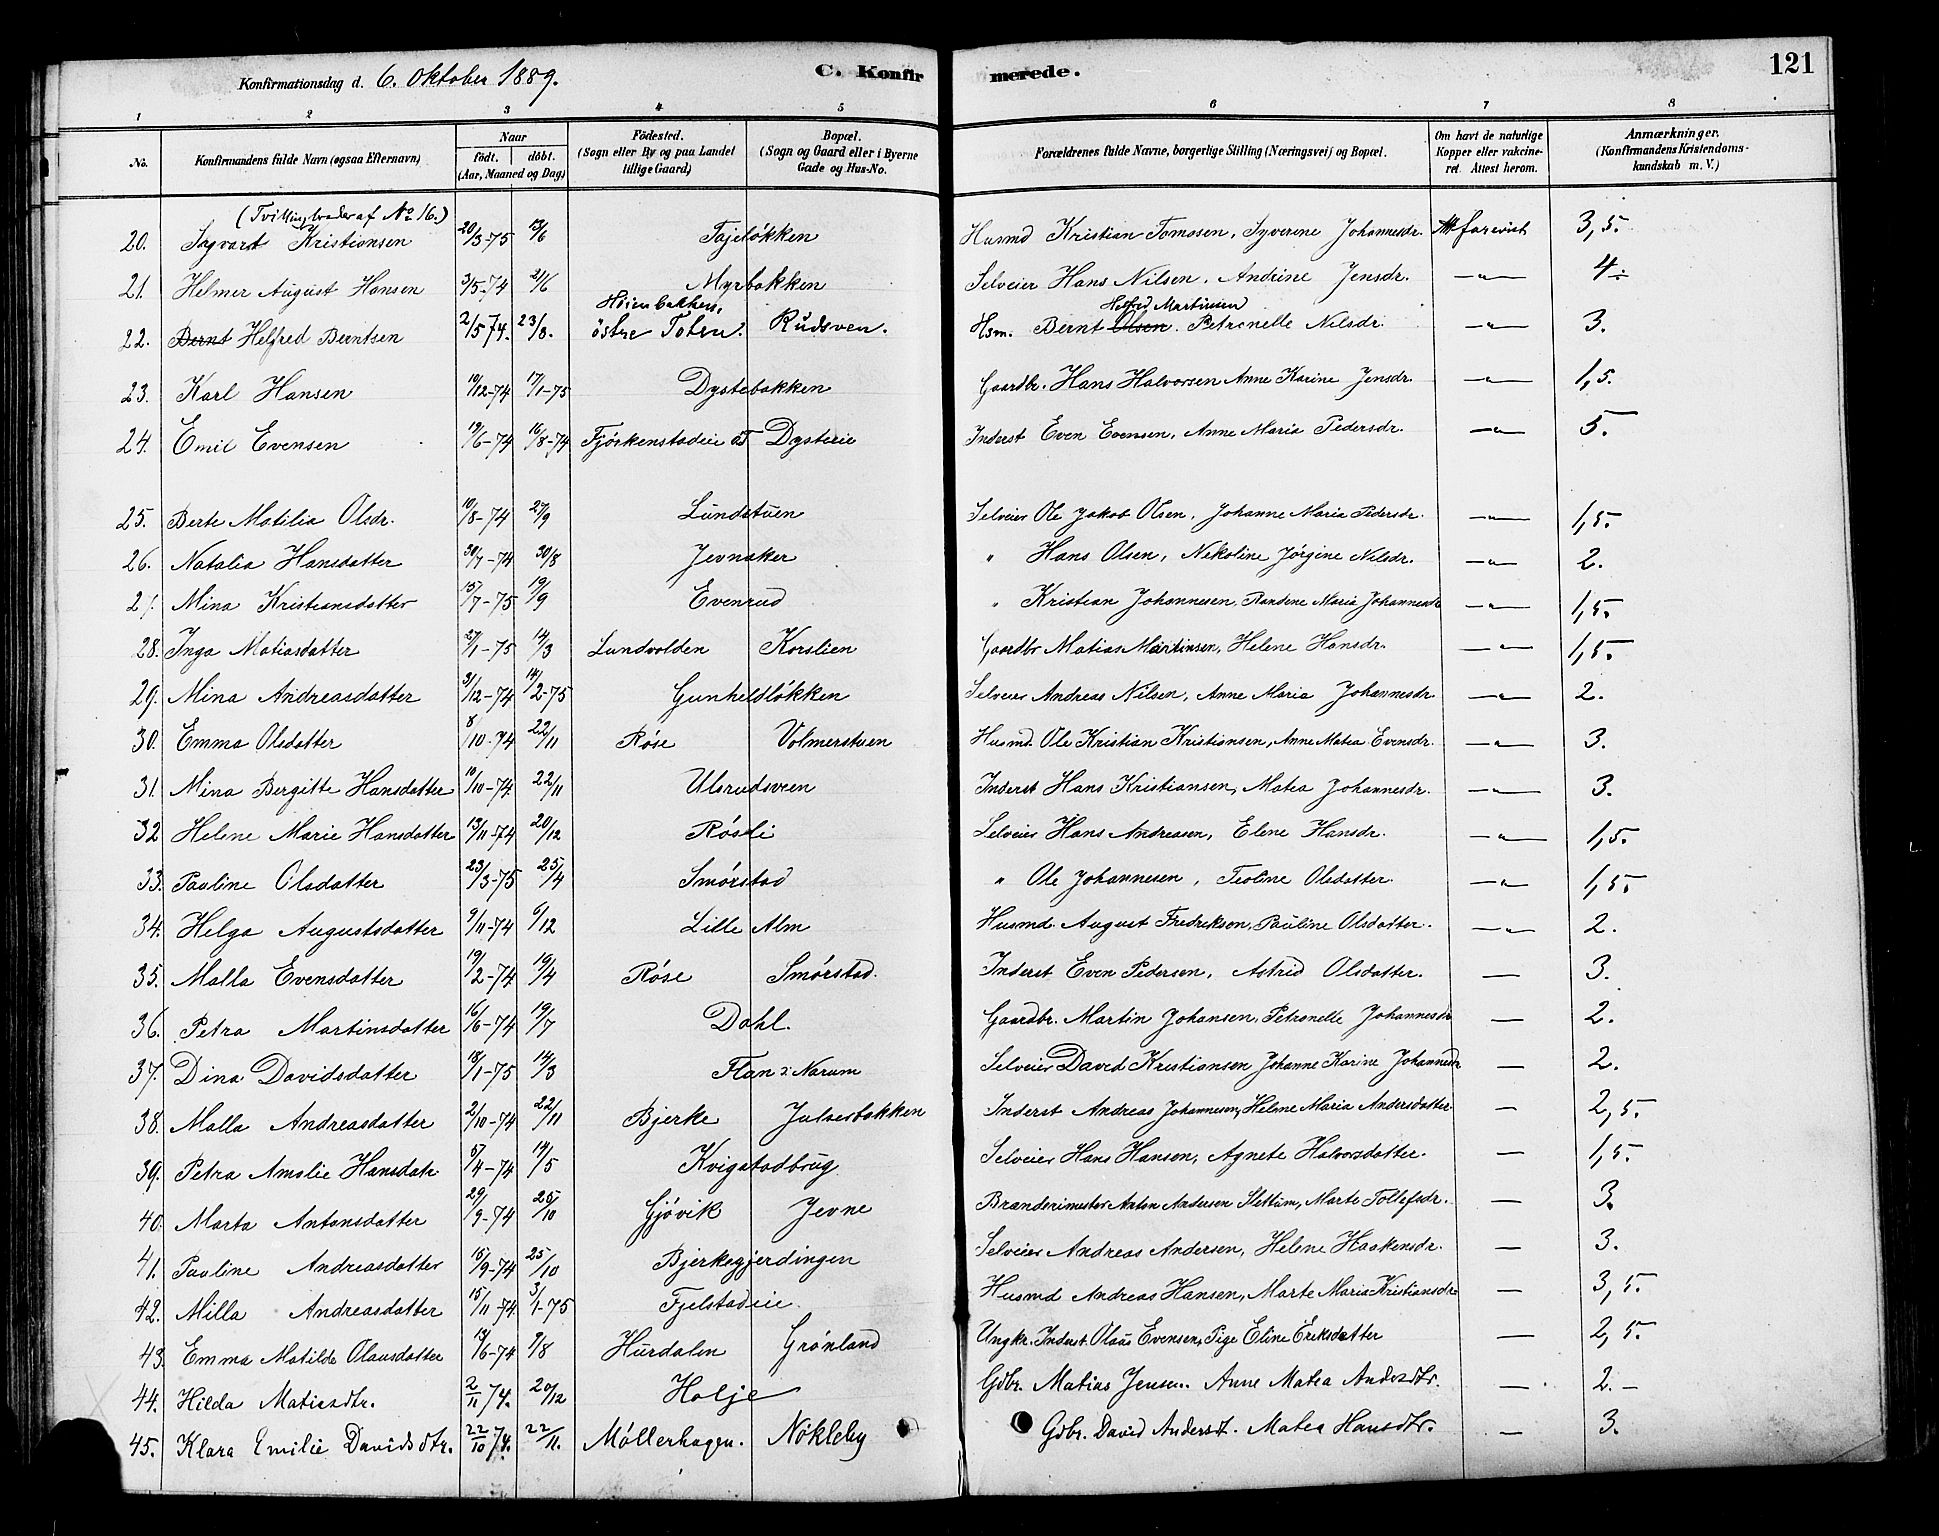 121
Konfirmationsdag d. 6. Oktober 1889. C. Konfirmerede.
1 2 3 4 5 6 7 8
No. Konfirmandens fulde Navn (ogsaa Efternavn) Naar födt. döbt. (Aar, Maaned og Dag) Födested. (Sogn eller By og paa Landet tillige Gaard) Bopæl. (Sogn og Gaard eller i Byerne Gade og Hus-No. Forældrenes fulde Navne, borgerlige Stilling (Næringsvei) og Bopæl. Om havt de naturlige Kopper eller vakcineret. Attest herom. Anmærkninger. (Konfirmandens Kristendomskundskab m. V.)
(Tvillingbroder af No 16.)
20. Sigvart Kristiansen 20/3-75 13/6 Tajeløkken Husmd Kristian Tomasen, Syverine Johannesdr. Att forevist 3,5.
21. Helmer August Hansen 3/5-74 21/6 Myrbakken Selveier Hans Nilsen, Andrine Jensdr. —"— 4÷
Høienbakken, Helfred Martinsen
22. Bernt Helfred Berntsen 2/5 74. 23/8. östre Toten. Rudsven. Hsm. Bernt Olsen. Petronelle Nilsdr. —"— 3.
23. Karl Hansen 10/12-74 17/1-75 Dystebakken Gaardbr. Hans Halvorsen Anne Karine Jensdr. —"— 1,5.
24. Emil Evensen 19/6-74 16/8-74 Fjøskenstadeie ØT Dysterie Inderst Even Evensen, Anne Maria Pedersdr. —"— 5.
25. Berte Matilia Olsdr. 10/8-74 27/9 Lundstuen Selveier Ole Jakob Olsen, Johanne Maria Pedersdr. —"— 1,5.
26. Natalia Hansdatter 30/7-74 30/8 Jevnaker " Hans Olsen, Nikoline Jørgine Nilsdr. —"— 2.
27. Mina Kristiansdatter 15/7-75 19/9 Evenrud " Kristian Johannesen, Randene Maria Johannesdr —"— 1,5.
28. Inga Matiasdatter 27/1-75 14/3 Lundvolden Korslien Gaardbr Matias Martinsen, Helene Hansdr. —"— 1,5.
29. Mina Andreasdatter 31/12-74 14/2-75 Gunheldløkken Selveier Andreas Nilsen, Anne Maria Johannesdr —"— 2.
30. Emma Olsdatter 8/10-74 22/11 Røse Volmerstuen Husmd. Ole Kristian Kristiansen, Anne Matea Evensdr. —"— 3.
31. Mina Bergitte Hansdatter 10/10-74 22/11 Ulsrudsveen Inderst Hans Kristiansen, Matea Johannesdr. —"— 3.
32 Helene Marie Hansdatter 13/11-74 20/12 Røsli Selveier Hans Andreasen, Elene Hansdr. —"— 1,5.
33. Pauline Olsdatter 23/3-75 25/4 Smørstad " Ole Johannesen, Teoline Olsdatter. —"— 1,5.
34. Helga Augustsdatter 9/11-74 6/12 Lille Alm Husmd. August Fredriksen, Pauline Olsdatter. —"— 2.
35. Malla Evensdatter 19/2-74 19/4 Røse Smørstad. Inderst Even Pedersen, Astrid Olsdatter. — 3.
36. Petra Martinsdatter 16/6-74 19/7 Dahl. Gaardbr. Martin Johansen, Petronelle Johannesdr — 2.
37. Dina Davidsdatter 18/1-75 14/3 Narum Selveier David Kristiansen Johanne Karine Johannesdr — 2.
38. Malla Andreasdatter 2/10-74 22/11 Bjerke Julsetbakken Inderst Andreas Johannesen, Helene Maria Andersdatter — 2,5.
39. Petra Amalie Hansdatr 5/4-74 14/5 Kvigstadbrug Selveier Hans Hansen, Agnete Halvorsdatter. — 1,5.
40. Marta Antonsdatter 29/9-74 25/10 Gjøvik Jevne Brænderimester Anton Andersen Slettum, Marte Tollefsdr. — 3.
41. Pauline Andreasdatter 15/9-74 25/10 Bjerkegjerdingen Selveier Andreas Andersen, Helene Haakensdr. — 3.
42. Milla Andreasdatter 15/11-74 3/1-75 Fjelstadeie Husmd Andreas Hansen, Marte Maria Kristiansdr — 3,5.
43. Emma Matilde Olausdatter 14/6-74 9/8 Hurdalen Grønland Ungkr. Inderst. Olaus Evensen, Pige Eline Eriksdatter — 2,5.
44. Hilda Matiasdtr. 2/11 74. 20/12 Holje Gdbr. Matias Jensen. Anne Matea Andersdtr. — 2.
45. Klara Emilie Davidsdtr. 22/10 74. 22/11. Møllerhagen. Nøkleby Gdbr. David Anderst. Matea Hansdtr. — 3.